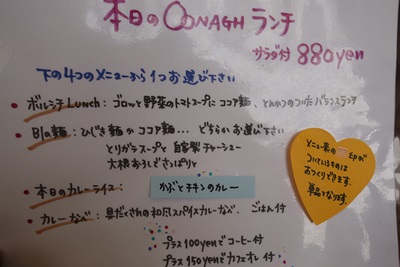 本日のOONAGHランチ
サラダ付 880yen
下の4つのメニューから1つお選び下さい
• ボルシチLunch: ゴロッと野菜のトマトスープとココア麺、とんかつのついたバランスランチ
• Bla麺: ひじき麺かココア麺... どちらかお選び下さい
とりガラスープと自家製チャーシュー
大根おろしでさっぱりと
• 本日のカレーライス: かぶとチキンのカレー
• カレーなべ: 具だくさんの和風スパイスカレーなべ、ごはん付
プラス100yenでコーヒー付
プラス150yenでカフェオレ付
メニュー表の
印が
ついているものは
おつくりできます。
単品となります。